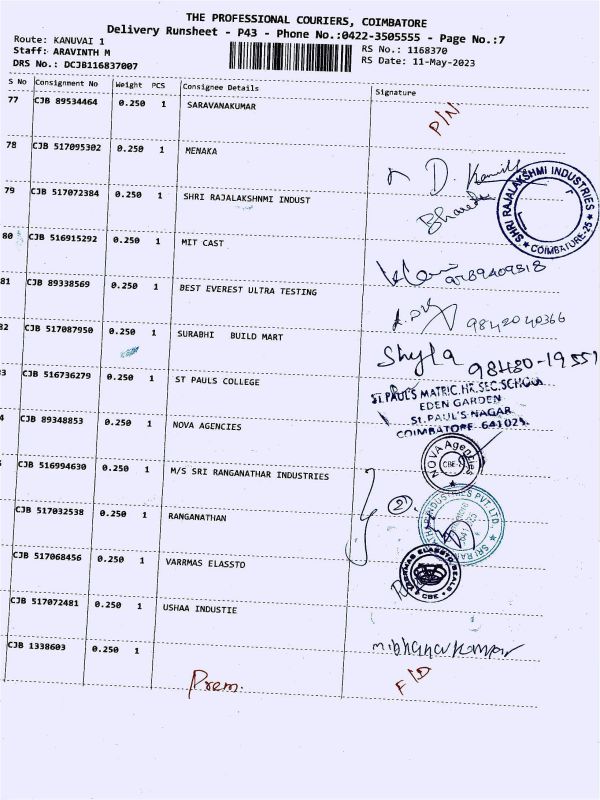 THE PROFESSIONAL COURIERS, COIMBATORE
Delivery Runsheet - P43 - Phone No.:0422-3505555 - Page No.:7
Route: KANUVAI 1
RS No.: 1168370
Staff: ARAVINTH M
RS Date: 11-May-2023
DRS No.: DCJB116837007
S No Consignment No Weight PCS Consignee Details Signature
77 CJB 89534464 0.250 1 SARAVANAKUMAR
P/N
78 CJB 517095302 0.250 1 MENAKA
D.
79 CJB 517072384 0.250 1 SHRI RAJALAKSHNMI INDUST
SHRI RAJALAKSHMI INDUSTRIES
COIMBATORE-25
80 CJB 516915292 0.250 1 MIT CAST
81 CJB 89338569 0.250 1 BEST EVEREST ULTRA TESTING
9842040366
82 CJB 517087950 0.250 1 SURABHI BUILD MART
Shyla 98430-19551
3 CJB 516736279 0.250 1 ST PAULS COLLEGE
ST.PAUL'S MATRIC.HR.SEC.SCHOOL
EDEN GARDEN
ST.PAUL'S NAGAR
COIMBATORE 641025.
4 CJB 89348853 0.250 1 NOVA AGENCIES
NOVA Agencies
CBE-
CJB 516994630 0.250 1 M/S SRI RANGANATHAR INDUSTRIES
2
INDUSTRIES PVT. LTD.
CJB 517032538 0.250 1 RANGANATHAN
CJB 517068456 0.250 1 VARRMAS ELASSTO
VARRMAS ELASSTO SEALS
CBE
CJB 517072481 0.250 1 USHAA INDUSTIE
CJB 1338603 0.250 1
Prem.
F/D